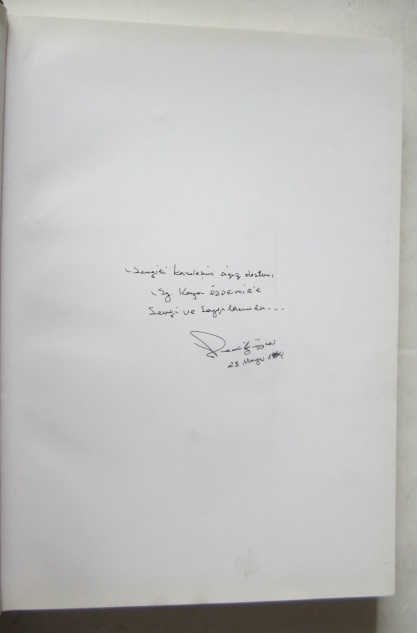 Sevgili kardeşim aziz dostum,
Sy Kaya ÖZDEMİR'e
Sevgi ve Saygılarımla...
28 Mayıs